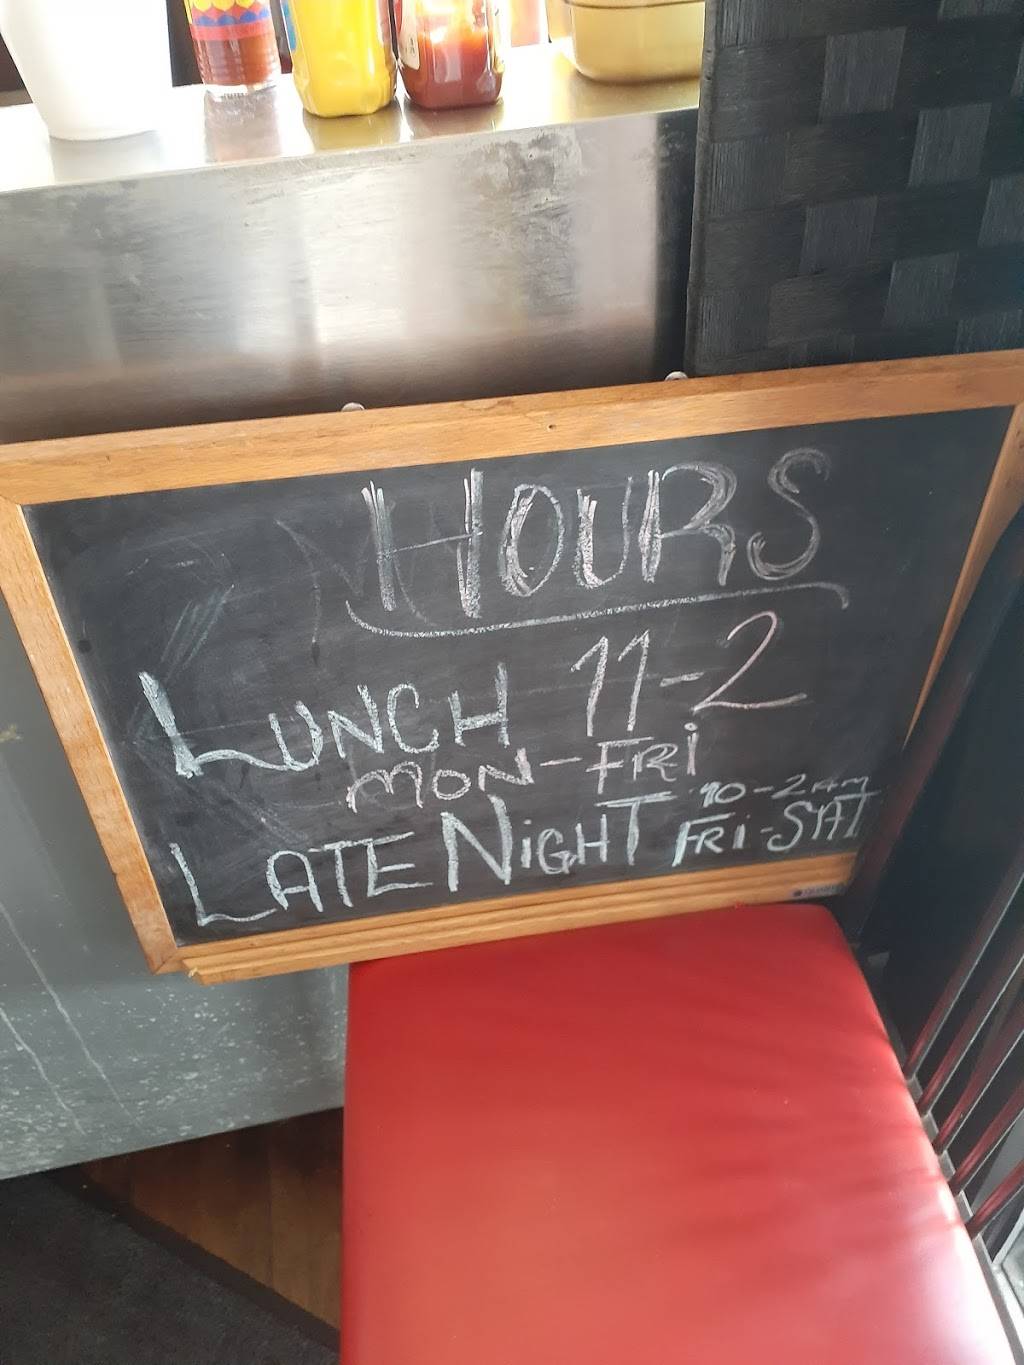 HOURS
LUNCH 11-2
MON-FRi
LATE NiGHT 10-2AM
FRi-SAT